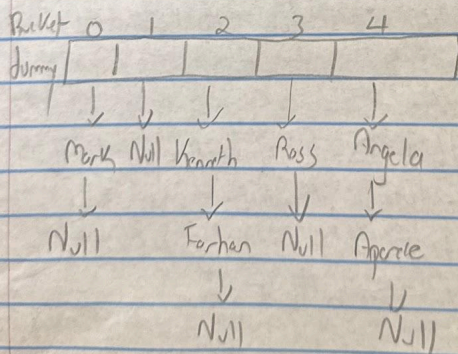 Bucket 0 1 2 3 4
dummy
Mark Null Kenneth Ross Angela
Null Farhan Null
Null Null